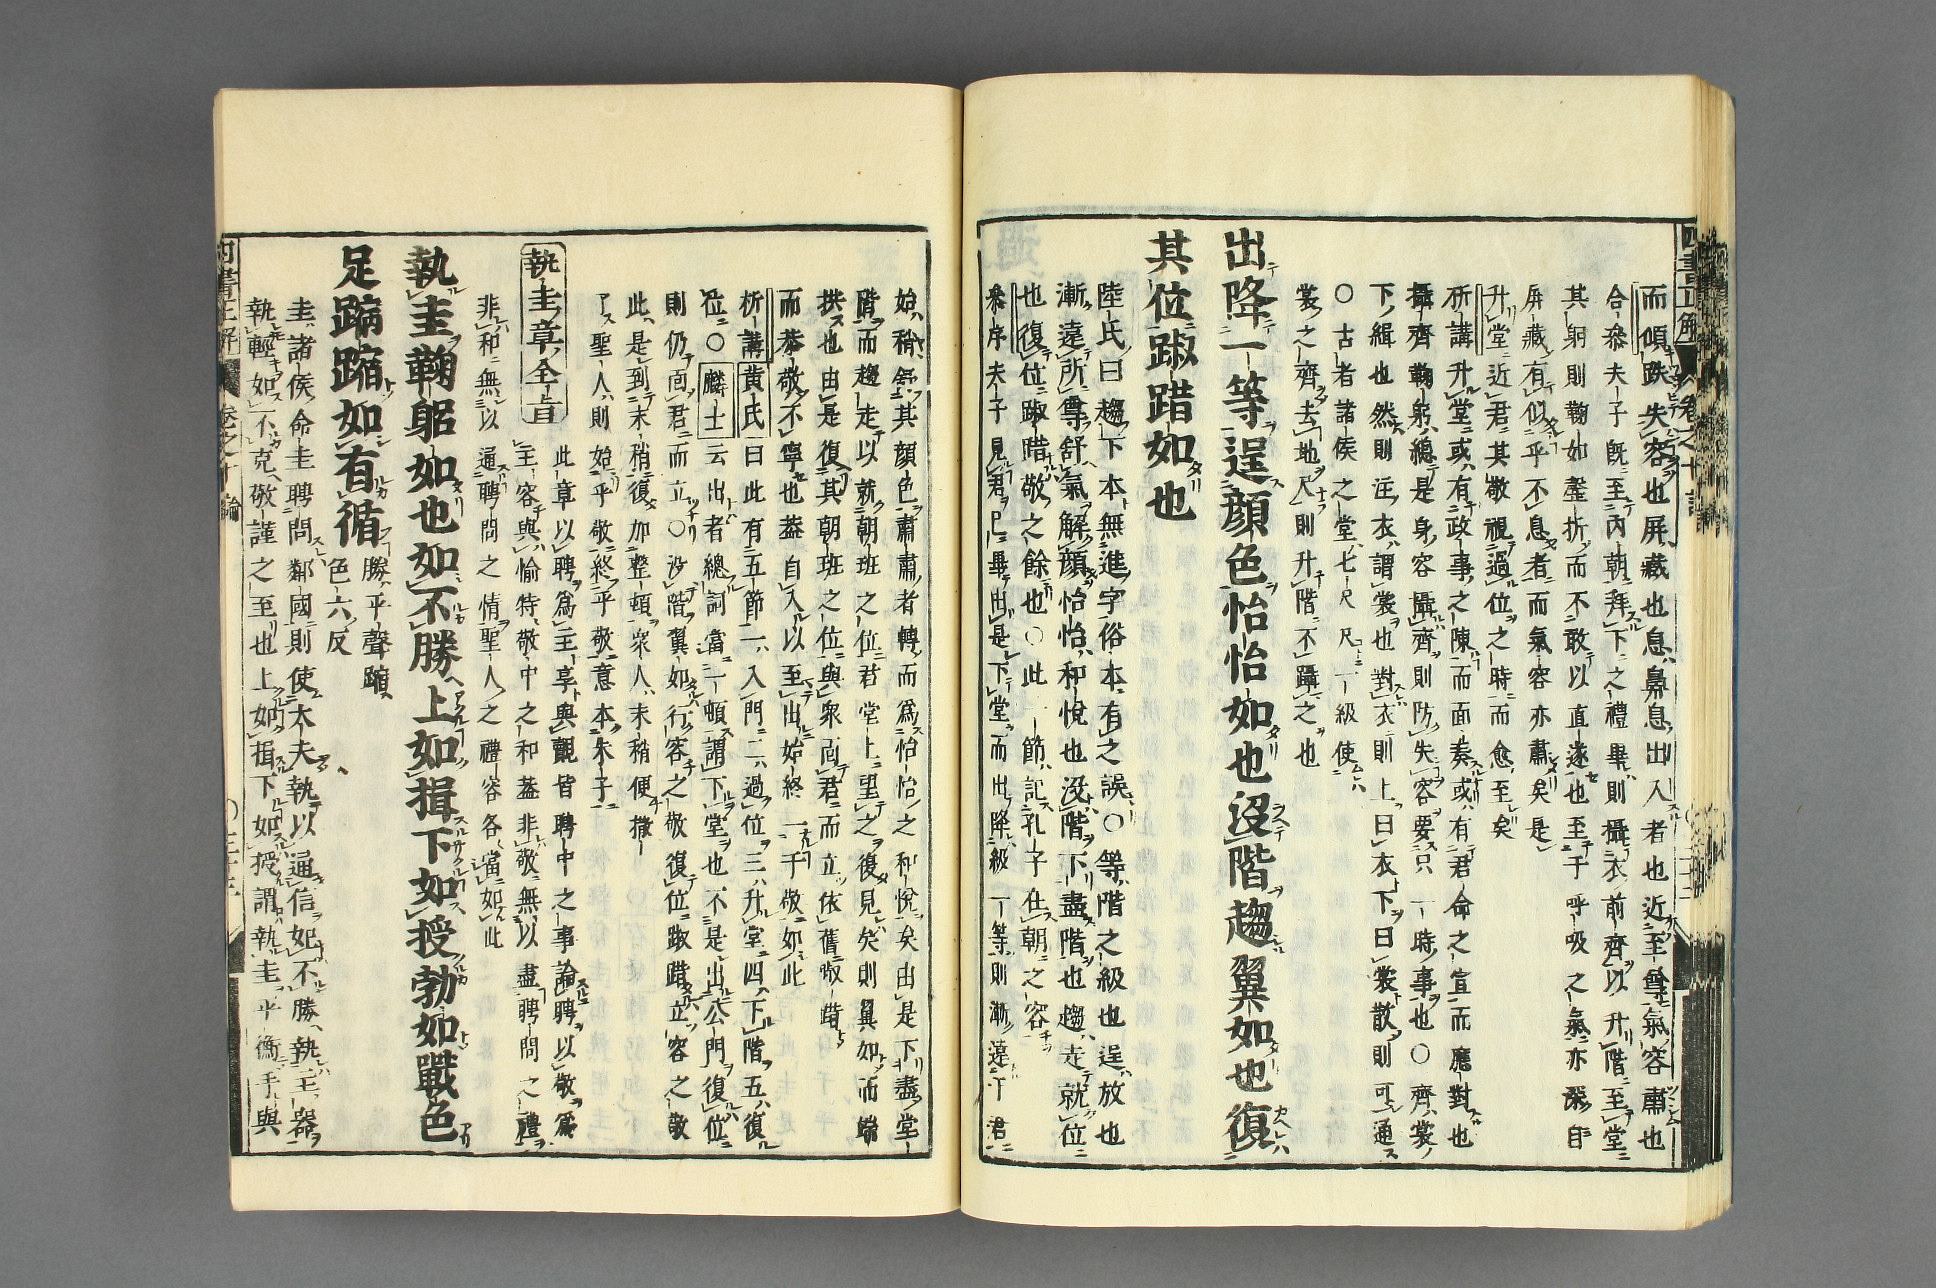 而傾跌失容也屏藏也息鼻息出入者也近至尊氣容肅也
合參夫子旣至内朝拜下之禮畢則攝衣前齊以升階至堂
其躬則鞠如磬折而不敢以直遂也至于呼吸之氣亦
屏藏有似乎不息者而氣容亦肅矣是
升堂近君其敬視過位之時而愈至矣
析講升堂或有政事之陳而面奏或有君命之宣而應對也
攝齊鞠躬總是身容攝齊則防失容要只一時事也〇齊裳
下緝也然則注衣謂裳也對衣則上曰衣下曰裳散則可通
〇古者諸侯之堂七尺尺一級使
裳之齊去地尺則升階不躡之也
出降一等逞顔色怡怡如也沒階趨翼如也復
其位踧踖如也
陸氏曰趨下本無進字俗本有之誤〇等階之級也逞放也
漸遠所尊舒氣解顔怡怡和悅也沒階下盡階也趨走就位
也復位踧踖敬之餘也〇此一節記孔子在朝之容
參序夫子見君已畢出是下堂而出降級一等則漸遠于君
始稍舒其顔色肅肅者轉而爲怡怡之和悅矣由是下盡堂
階而趨走以就朝班之位君堂上望之復見矣則翼如而端
拱也由是復其朝班之位與衆向君而立依舊踧踖
而恭敬不寧也蓋自入以至出始終一于敬如此
析講黄氏曰此有五節一入門二過位三升堂四下階五復
位〇麟士云出者總詞當一頓謂下堂也不是出公門復位
則仍面君而立〇沒階翼如行容之敬復位踧踖立容之敬
此是到末稍復加整頓衆人末稍便撒
了聖人則始乎敬終乎敬意本朱子
執圭章全旨
此章以聘爲主享與覿皆聘中之事論聘以敬爲
主容與愉特敬中之和蓋非敬無以盡聘問之禮
非和無以通聘問之情聖人之禮容各當如此
執圭鞠躬如也如不勝上如揖下如授勃如戰色
足蹜蹜如有循
勝平聲蹜
色六反
圭諸侯命圭聘問鄰國則使大夫執以通信如不勝執主器
執輕如不克敬謹之至也上如揖下如授謂執圭平衡手與